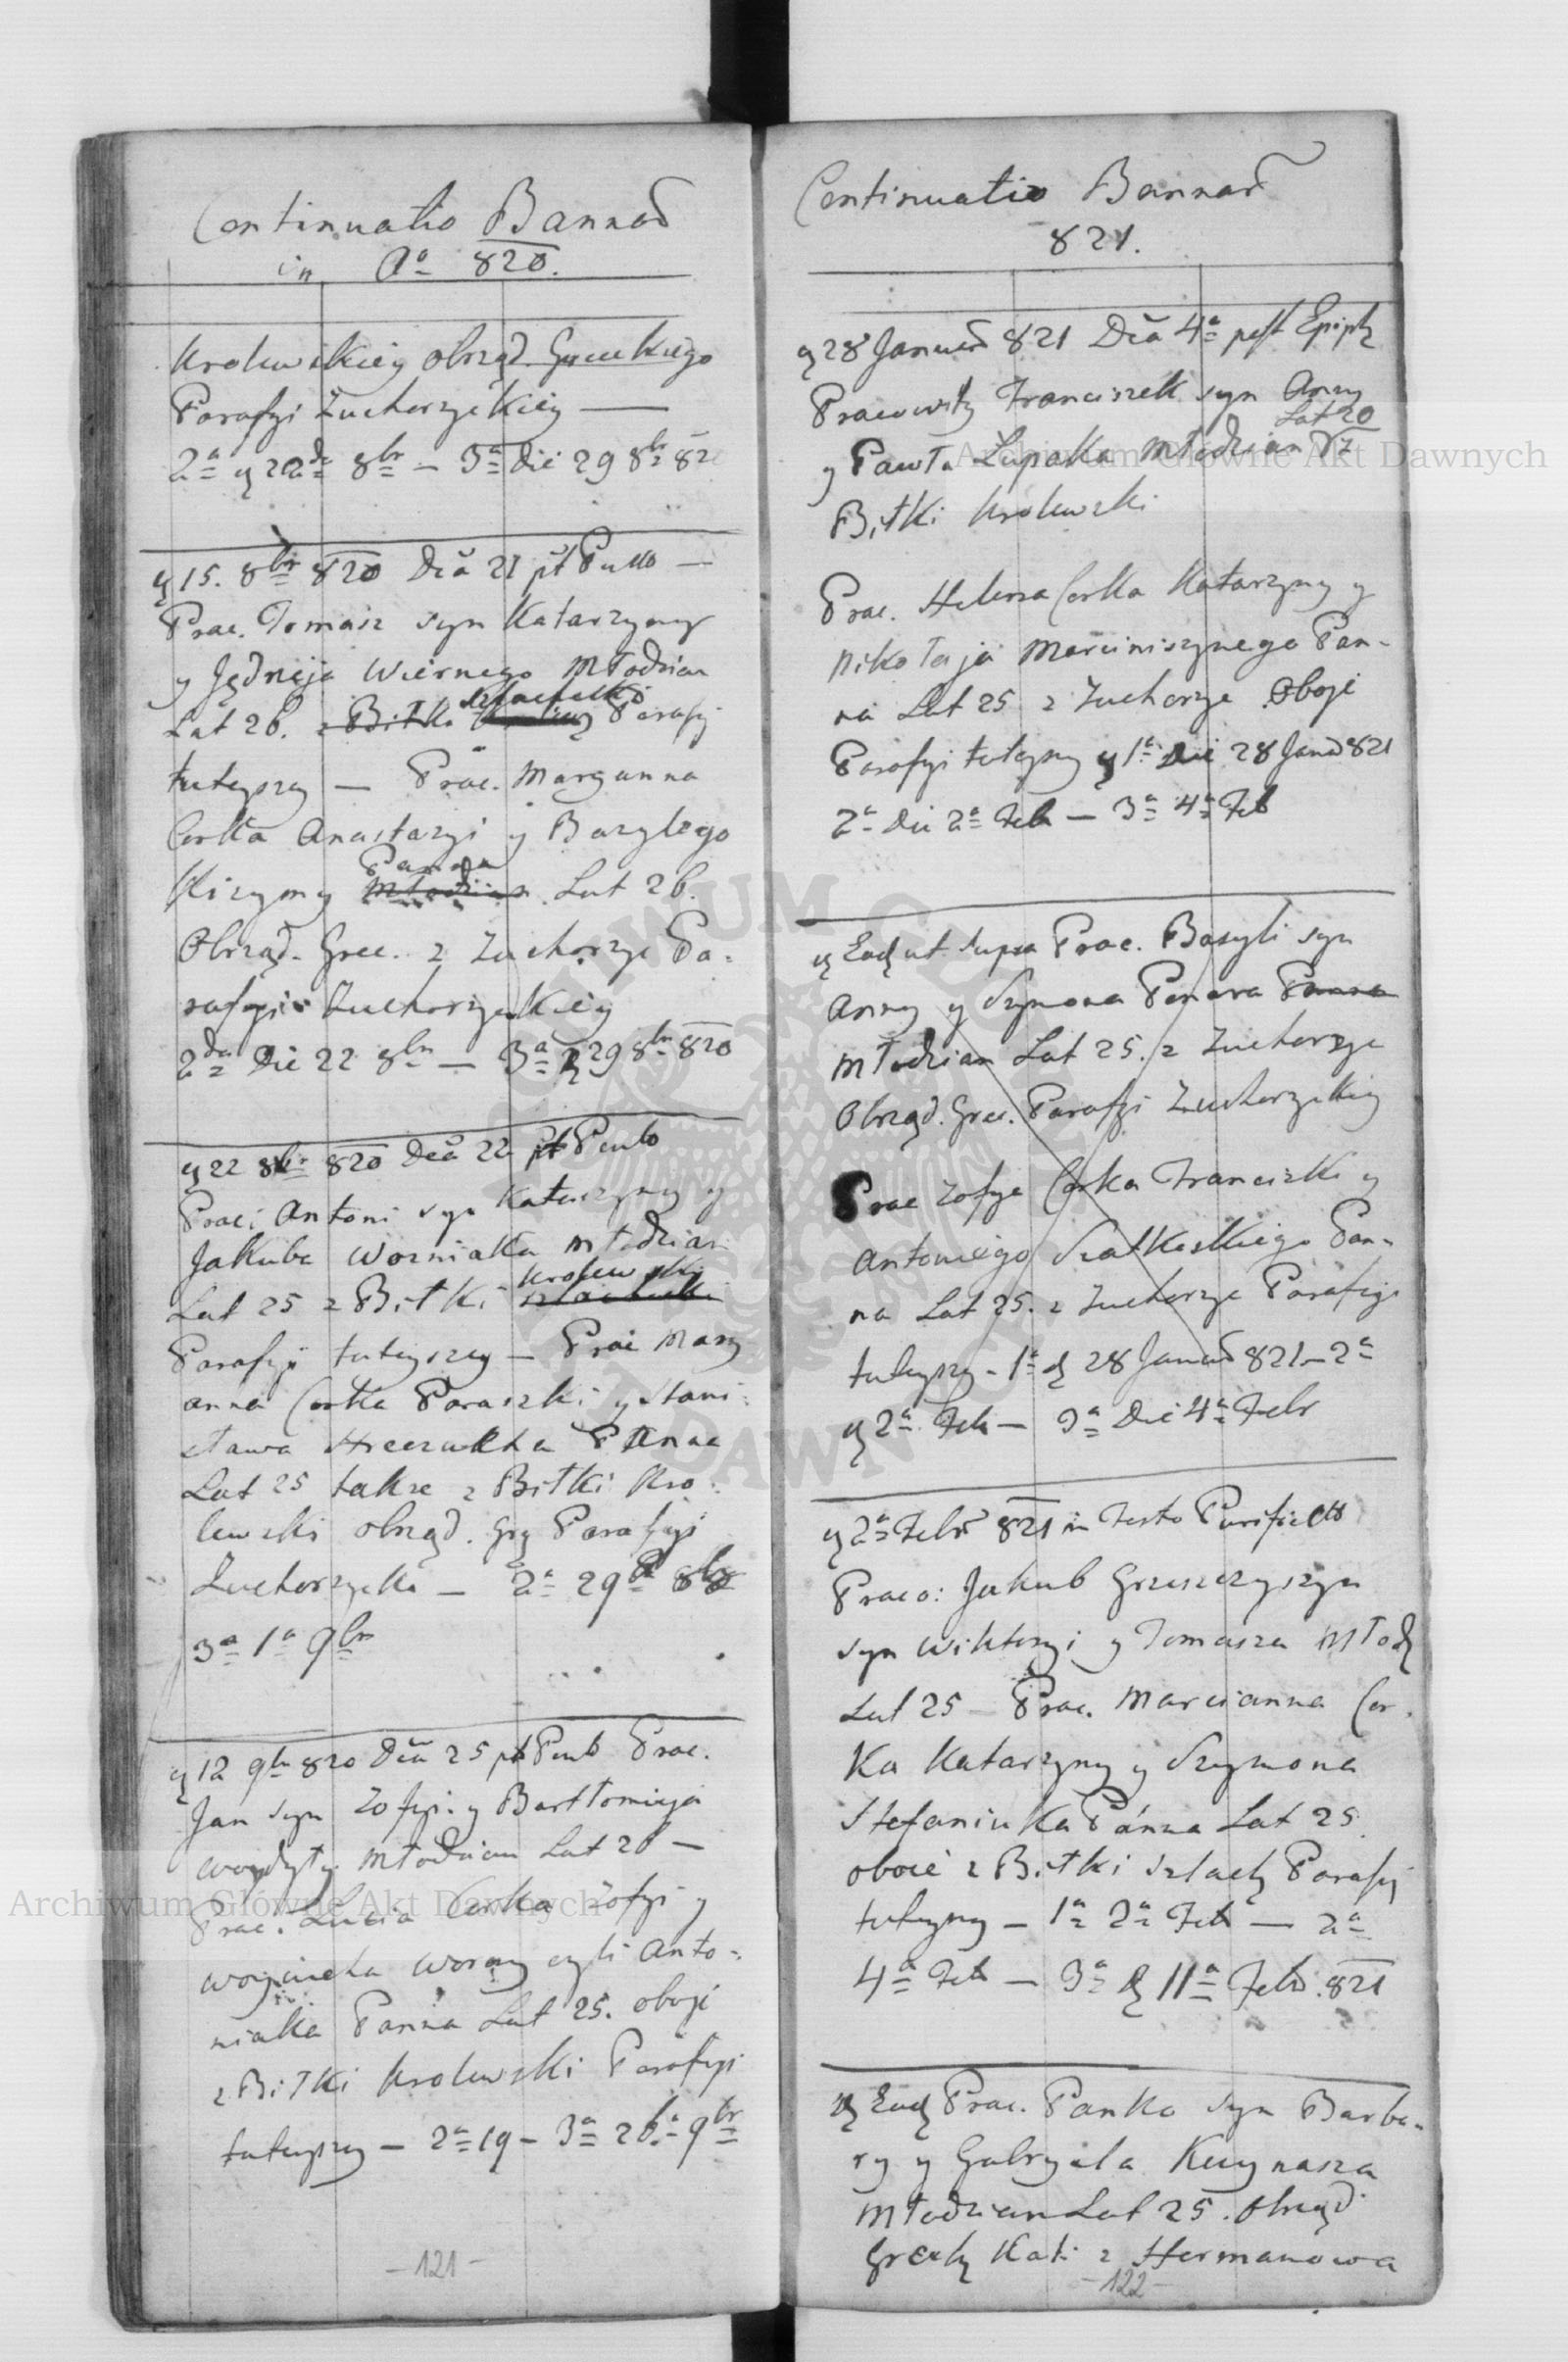 Continuatio Bannad
in Ao 820.
Krolewskiey obrząd. Greckiego
Parafyi Zuchorzyckiey —
2a 22da 8br — 3a Die 29 8br 82
15. 8br 820 Dca 21 pt Pent —
Prac. Tomasz syn Katarzyny
y Jędrzeja Wiernego Młodzian
Lat 26. z Bitki szlachecki Parafyi
tuteyszey — Prac. Maryanna
Corka Anastazyi y Bazylego
Panna
Młodzian Lat 26.
Obrząd. Grec. z Zuchorzyc Pa-
rafyi Zuchorzyckiey
2da Die 22 8br — 3a 29 8br 820
22 8br 820 Dca 22 pt Pent
Prac: Antoni syn Katarzyny y
Jakuba Wozniaka Młodzian
krolewski
Lat 25 z Bitki szlachecki
Parafyi tuteyszey — Prac Mary
anna Corka Paraszki y Stani:
sława Panna
Lat 25 takze z Bitki Kro:
lewski obrząd. Parafyi
Zuchorzycki — 2a 29 8br
3a 1a 9br
12 9br 820 Dca 25 pt Pent Prac.
Jan syn Zofyi y Bartłomieja
Młodzian Lat 26 —
Prac. Lucia Corka Zofyi y
Woyciecha Worony czyli Anto-
niaka Panna Lat 25. oboje
z Bitki Krolewski Parafyi
tuteyszey — 2a 19 — 3a 26a 9br
-121-
Continuatio Bannad
821.
28 Januar 821 Dca 4a post Epiph
Pracowity Franciszek syn Anny
Lat 20
y Pawła Łupaka Młodzian z
Bitki Krolewski
Prac. Helena Corka Katarzyny y
Nikołaja Marciniszynego Pan-
na Lat 25 z Zuchorzyc Oboje
Parafyi tuteyszy 1a Die 28 Janu 821
2a Die 2a Feb — 3a 4a Feb
Ead ut supra Prac. Basyli syn
Anny y Szymona Panna
Młodzian Lat 25. z Zuchorzyc
Obrząd. Grec. Parafyi Zuchorzyckiey
Prac Zofya Corka Franciszki y
Antoniego Pan-
na Lat 25. z Zuchorzyc Parafyi
tuteyszy - 1a 28 Januar 821 — 2a
2a Feb — 3a Die 4a Febr
2a Febr 821 in Festo Purificatt
Praco: Jakub Gruszczyszyn
syn Wiktoryi y Tomasza Młodz
Lat 25 — Prac. Marcianna Cor-
ka Katarzyny y Szymona
Stefaniuka Panna Lat 25.
oboie z Bitki szlach Parafyi
tuteyszy — 1a 2a Feb — 2a
4a Feb — 3a 11a Febr. 821
Ead Prac. Panko syn Barba-
ry y Gabryela Kuynasza
Młodzian Lat 25. Obrząd
Kat: z Hermanowa
-122-
Archiwum Główne Akt Dawnych
Archiwum Główne Akt Dawnych